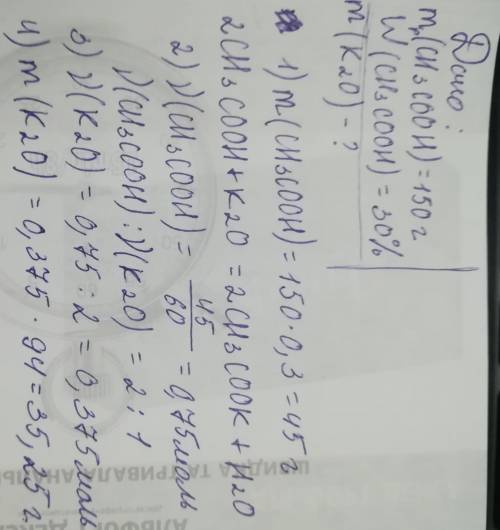 Дано:
mр(CH3COOH) = 150 г
W(CH3COOH) = 30%
m(K2O) - ?
1) m(CH3COOH) = 150 · 0,3 = 45 г
2CH3COOH + K2O = 2CH3COOK + H2O
2) ν(CH3COOH) = 45/60 = 0,75 моль
ν(CH3COOH) : ν(K2O) = 2 : 1
3) ν(K2O) = 0,75 : 2 = 0,375 моль
4) m(K2O) = 0,375 · 94 = 35,25 г